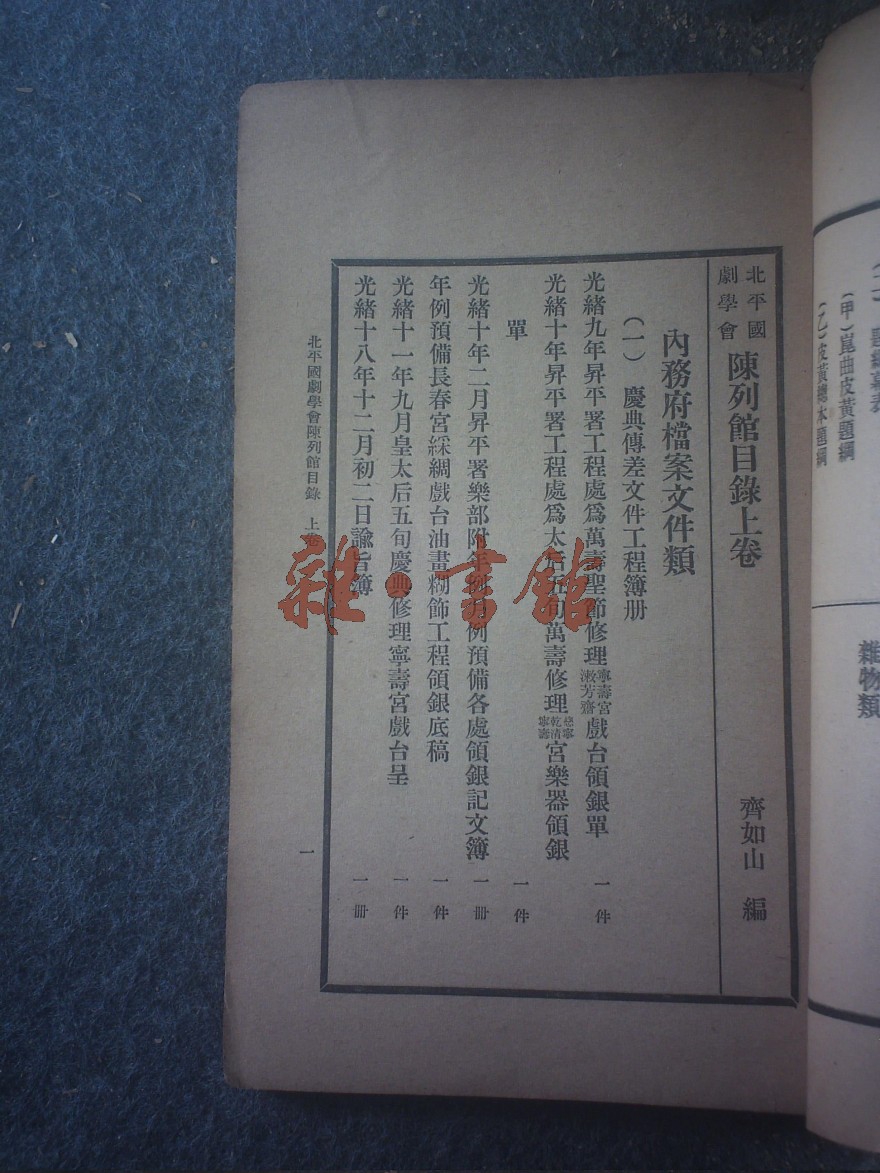 北平國劇學會陳列館目錄上卷 齊如山 編
內務府檔案文件類
(一) 慶典傳差文件工程簿册
光緒九年昇平署工程處爲萬壽聖節修理寧壽宮漱芳齋戲台領銀單 一件
光緒十年昇平署工程處爲太后五旬萬壽修理慈寧乾清寧壽宮樂器領銀
單 一件
光緒十年二月昇平署樂部附年例月例預備各處領銀記文簿 一册
年例預備長春宮綵綢戲台油畫糊飾工程領銀底稿 一件
光緒十一年九月皇太后五旬慶典修理寧壽宮戲台呈 一件
光緒十八年十二月初二日諭旨簿 一册
北平國劇學會陳列館目錄 上卷 一
(甲)崑曲皮黃題綱
(乙)皮黃總本題綱
雜物類
雜·書館